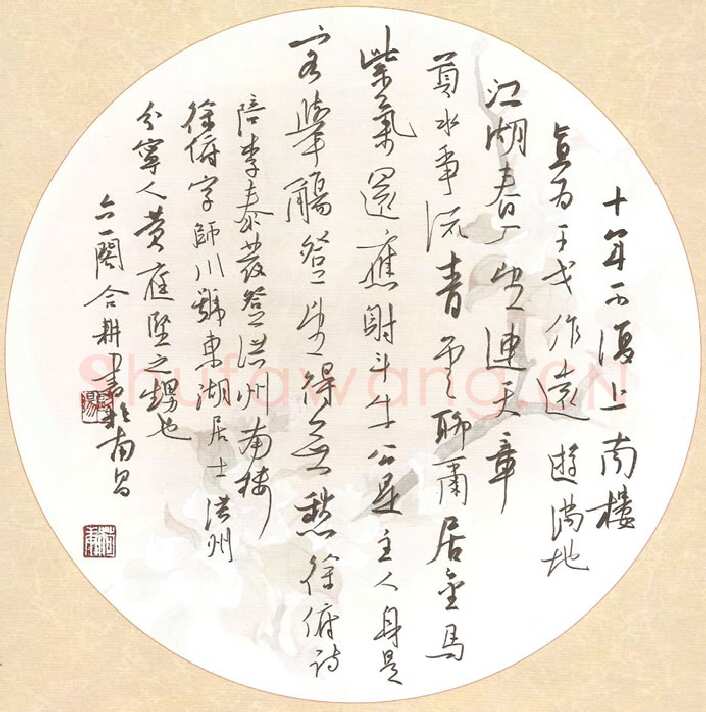 十年不復上南樓
直为干戈作遠遊滿地
江湖春入望連天章
貢水爭流青雲聊爾居金馬
紫氣還應射斗牛公是主人身是
客舉觴登望得無愁徐俯詩
陪李泰發登洪州南樓
徐俯字師川號東湖居士洪州
分寧人黃庭堅之甥也
閣合耕書於南昌
Shufawang.cn